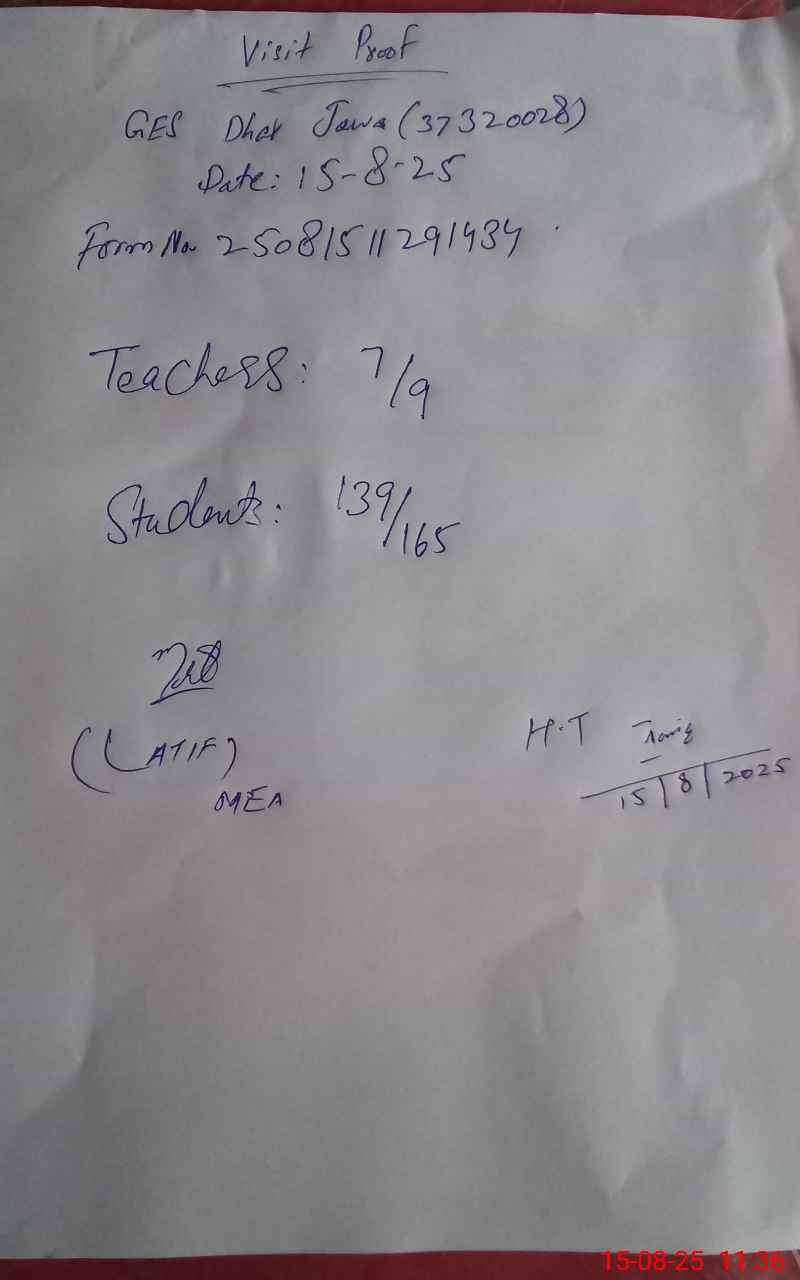 Visit Proof
GES Dhak Jawa (37320028)
Date: 15-8-25
Form No 25081511291434
Teachers: 7/9
Students: 139/165
(LATIF)
MEA
H.T
15/8/2025
15-08-25 11:36